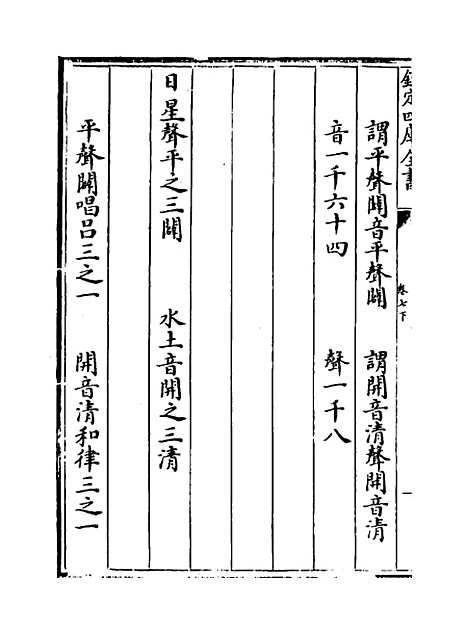 欽定四庫全書
卷七下
一
謂平聲闢音平聲闢　謂開音清聲開音清
音一千六十四　聲一千八
日星聲平之三闢　水土音開之三清
平聲闢唱呂三之一　開音清和律三之一